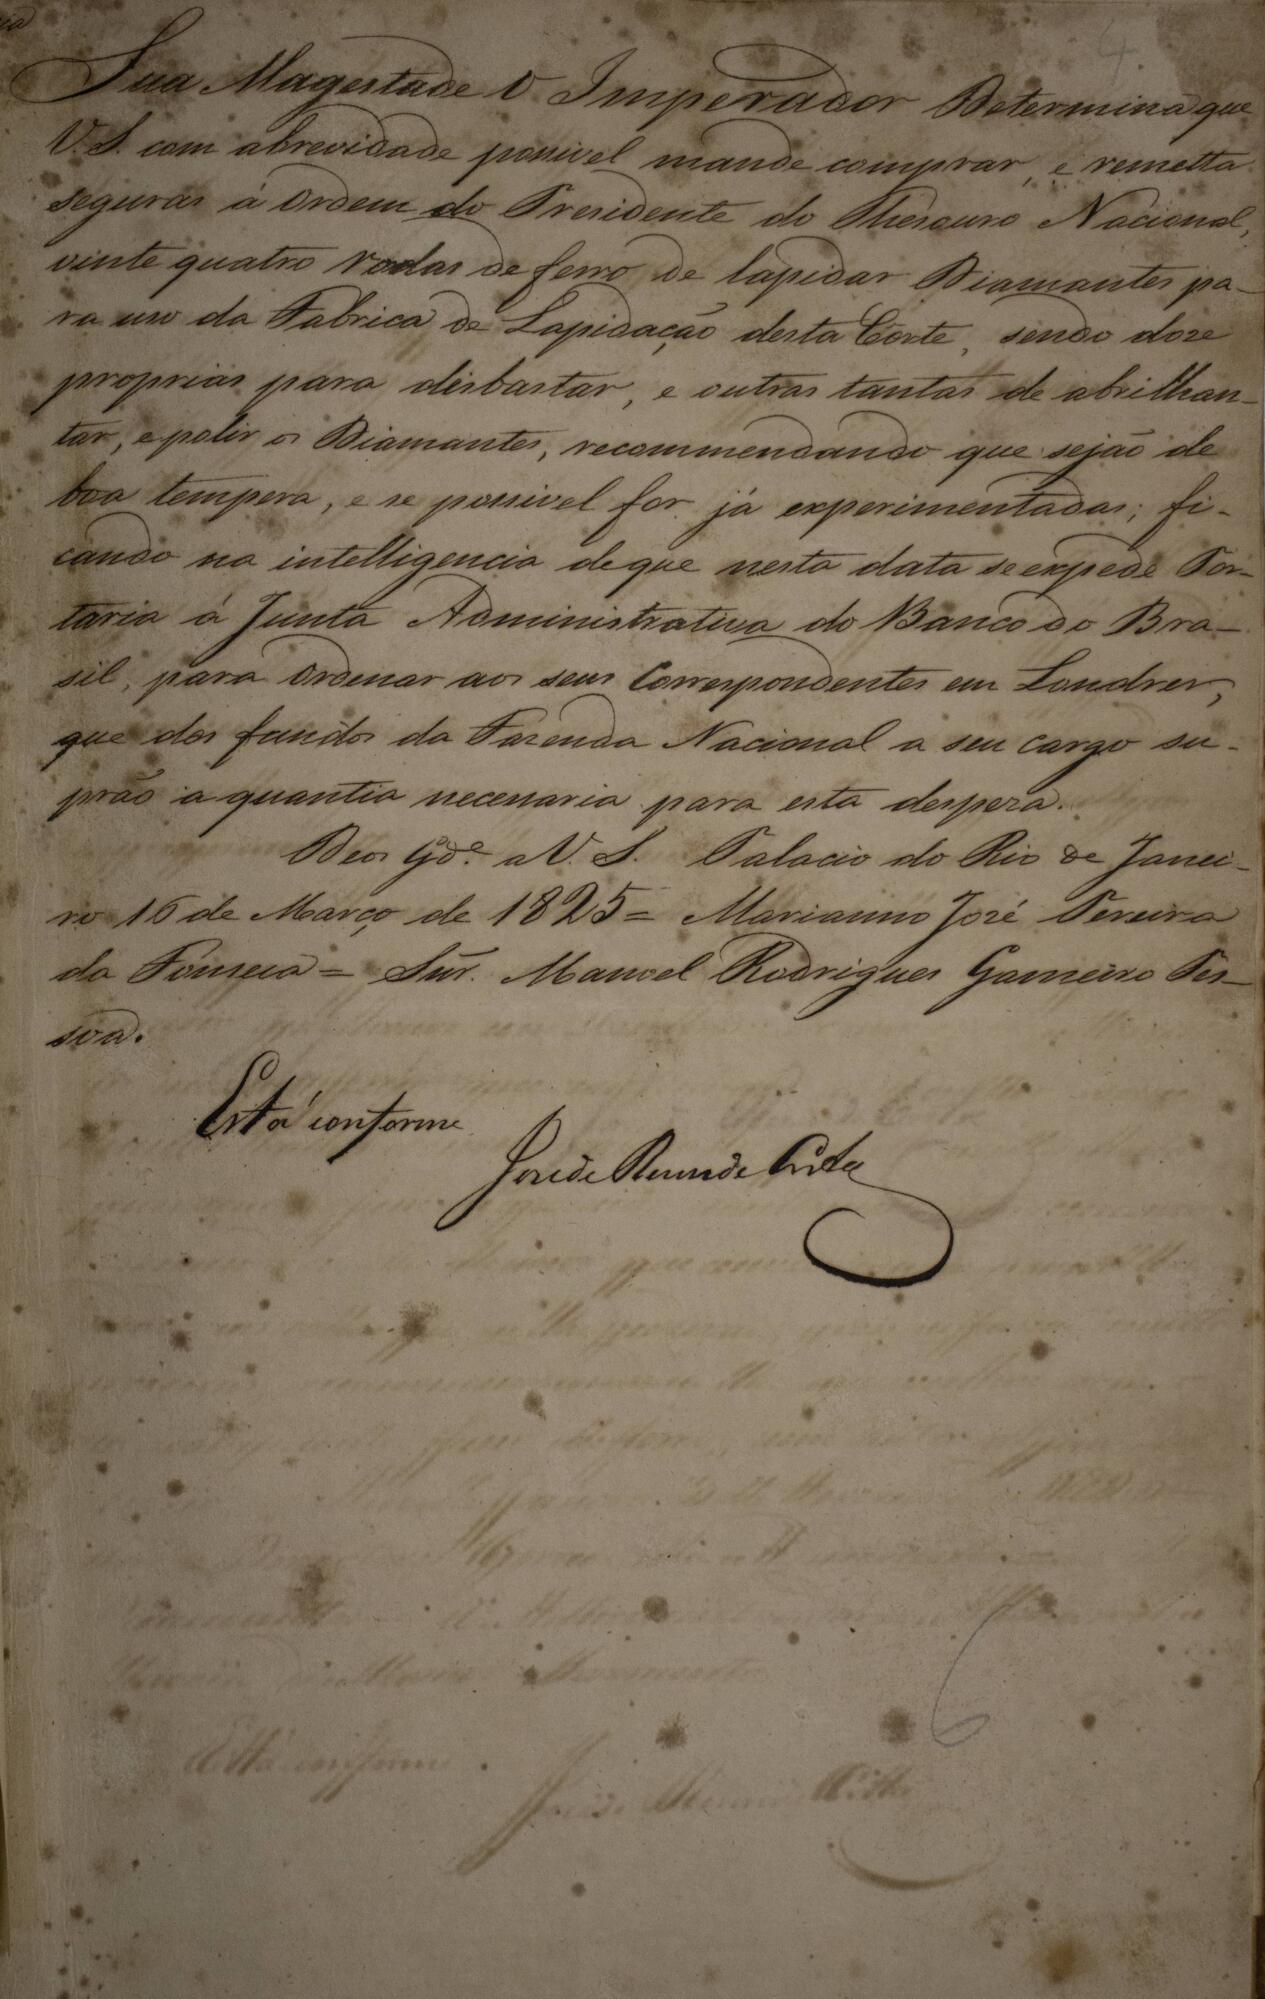 4.
Sua Magestade O Imperador Determina que
V. S. com abrevidade possivel mande comprar, e remetta
seguras á Ordem do Presidente do Thesouro Nacional,
vinte quatro rodas de ferro de lapidar Diamantes pa-
ra uso da Fabrica de Lapidação desta Corte, sendo doze
proprias para disbastar, e outras tantas de abrilhan-
tar, e polir os Diamantes, recommendando que sejão de
boa tempera, e se possivel for já experimentadas; fi-
cando na intelligencia de que nesta data se expede Por-
taria á Junta Administrativa do Banco do Bra-
sil, para Ordenar aos seus Correspondentes em Londres,
que dos fundos da Fazenda Nacional a seu cargo su-
prão a quantia necessaria para esta despeza.
Deos Gde. a V. S. Palacio do Rio de Janei-
ro 16 de Março de 1825 = Marianno José Pereira
da Fonseca = Snr. Manoel Rodrigues Gameiro Pes-
soa.
Está conforme
José de Resende Costa
6